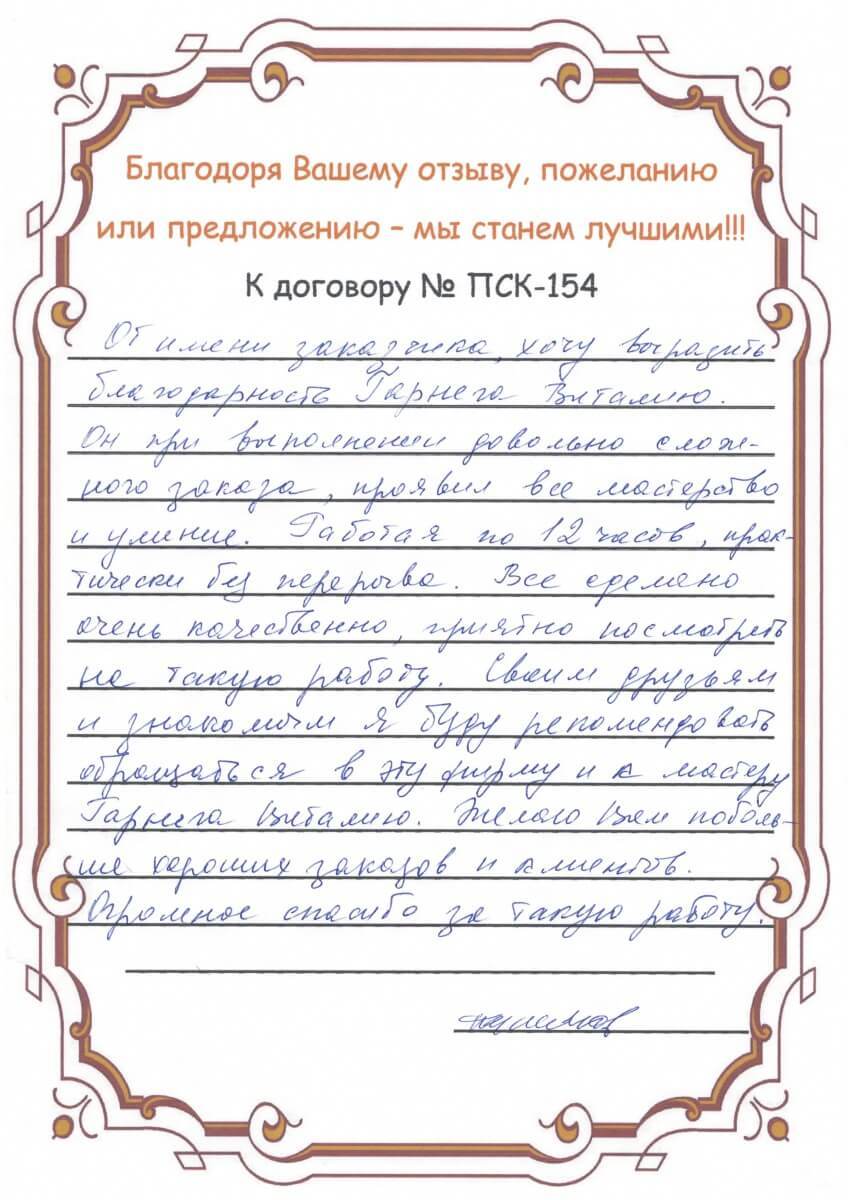 Благодоря Вашему отзыву, пожеланию
или предложению – мы станем лучшими!!!
К договору № ПСК-154
От имени заказчика, хочу выразить
благодарность Гарнега Виталию.
Он при выполнении довольно слож-
ного заказа, проявил все мастерство
и умение. Работая по 12 часов, прак-
тически без перерыва. Все сделано
очень качественно, приятно посмотреть
на такую работу. Своим друзьям
и знакомым я буду рекомендовать
обращаться в эту фирму и к мастеру
Гарнега Виталию. Желаю Вам поболь-
ше хороших заказов и клиентов.
Огромное спасибо за такую работу.